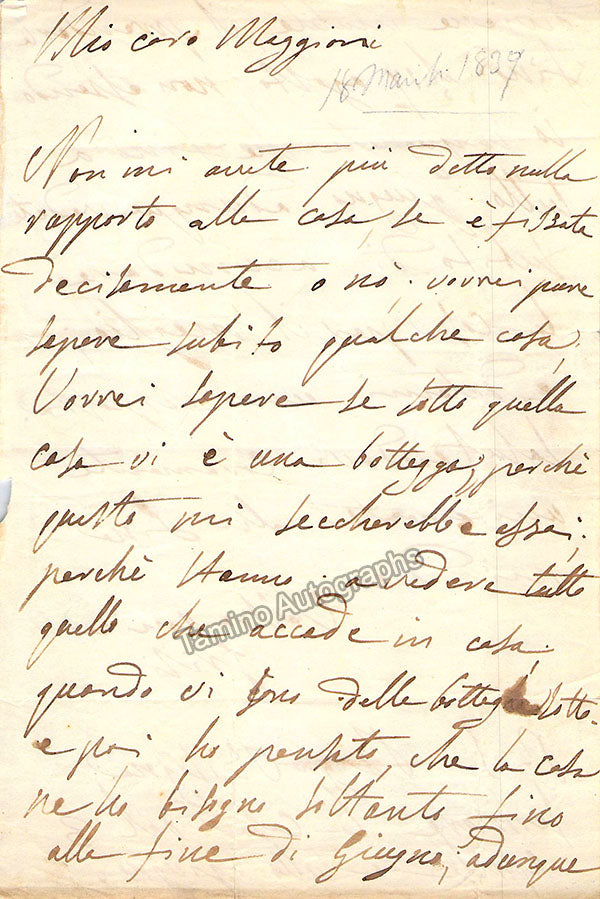 Mio caro Maggioni
18 March 1839
Non mi avete più detto nulla
rapporto alla casa, se è fissata
decisamente o nò, vorrei pure
sapere subito qualche cosa,
Vorrei sapere se sotto quella
casa vi è una bottega, perchè
questo mi seccherebbe assai,
perchè stanno a vedere tutto
quello che accade in casa,
quando vi sono delle botteghe sotto.
e poi ho pensato, che la casa
ne ho bisogno soltanto fino
alla fine di Giugno, adunque
Tamino Autographs